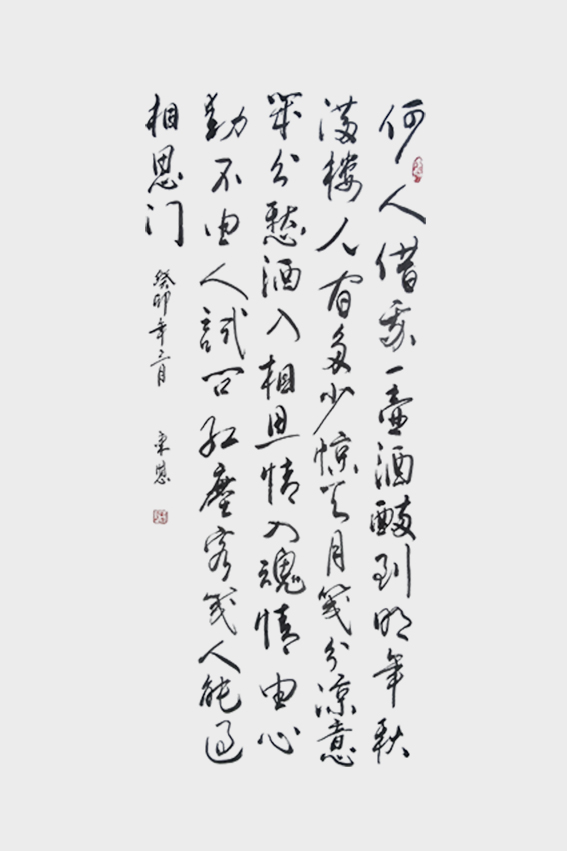 何人借我一壶酒醉到明年秋
满楼人有多少惊天月几分凉意
几分愁酒入相思情入魂情由心
動不由人試问红塵客几人能过
相思门
癸卯年三月 東恩